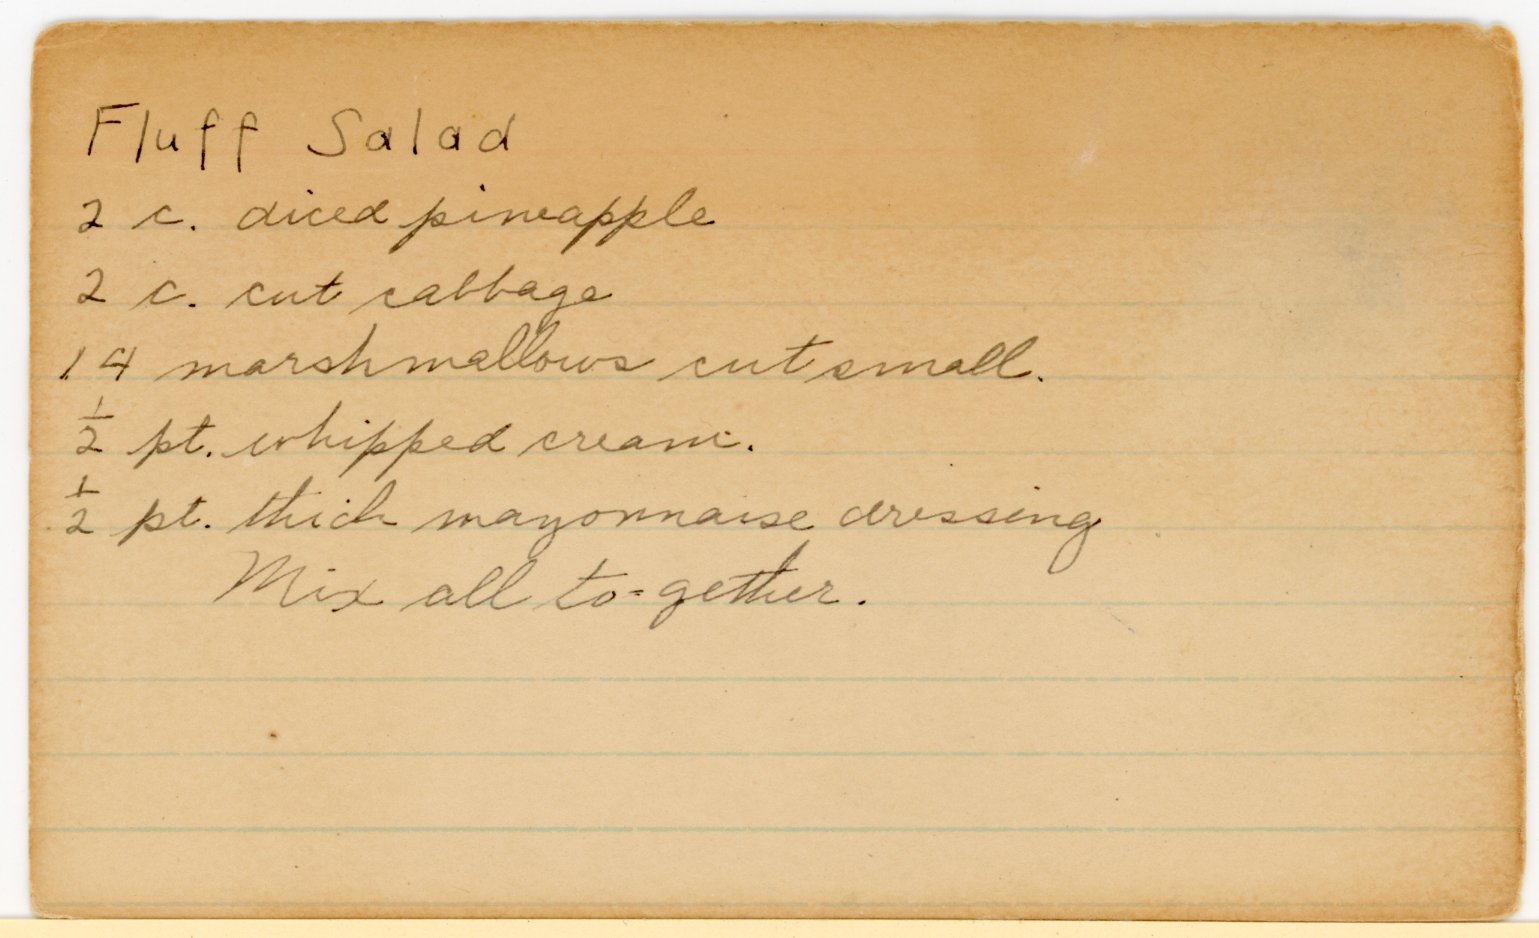 Fluff Salad
2 c. diced pineapple
2 c. cut cabbage
14 marshmallows cut small.
1/2 pt. whipped cream.
1/2 pt. thick mayonnaise dressing
Mix all to=gether.